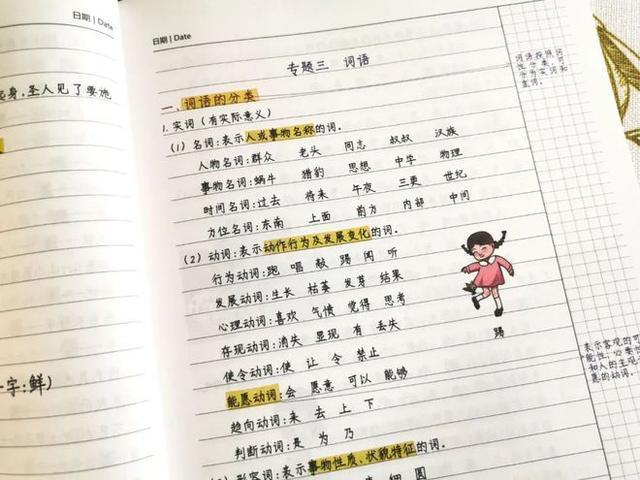 日期 | Date
起身,圣人见了要施
一字:鲜)
日期 | Date
专题三 词语
一、词语的分类
1.实词(有实际意义)
(1)名词:表示人或事物名称的词。
人物名词:群众 老头 同志 叔叔 汉族
事物名词:蜗牛 猎豹 思想 中学 物理
时间名词:过去 将来 午夜 三更 世纪
方位名词:东南 上面 前方 内部 中间
(2)动词:表示动作行为及发展变化的词。
行为动词:跑 唱 敲 踢 闻 听
发展动词:生长 枯萎 发芽 结果
心理动词:喜欢 气愤 觉得 思考
存现动词:消失 显现 有 丢失
使令动词:使 让 令 禁止
能愿动词:会 愿意 可以 能够
趋向动词:来 去 上 下
判断动词:是 为 乃
形容词:表示事物性质、状貌特征的词。
细 圆
踢
词语按照词
性分类,可
分为实词和
虚词。
表示客观的可
能性、必要性
和人的主观意
愿的动词。